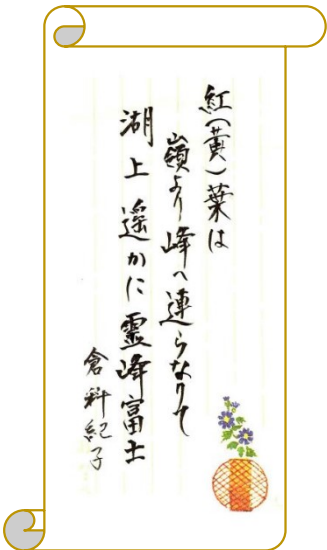 紅(黄)葉は
嶺より峰へ連らなりて
湖上遥かに霊峰富士
倉科紀子